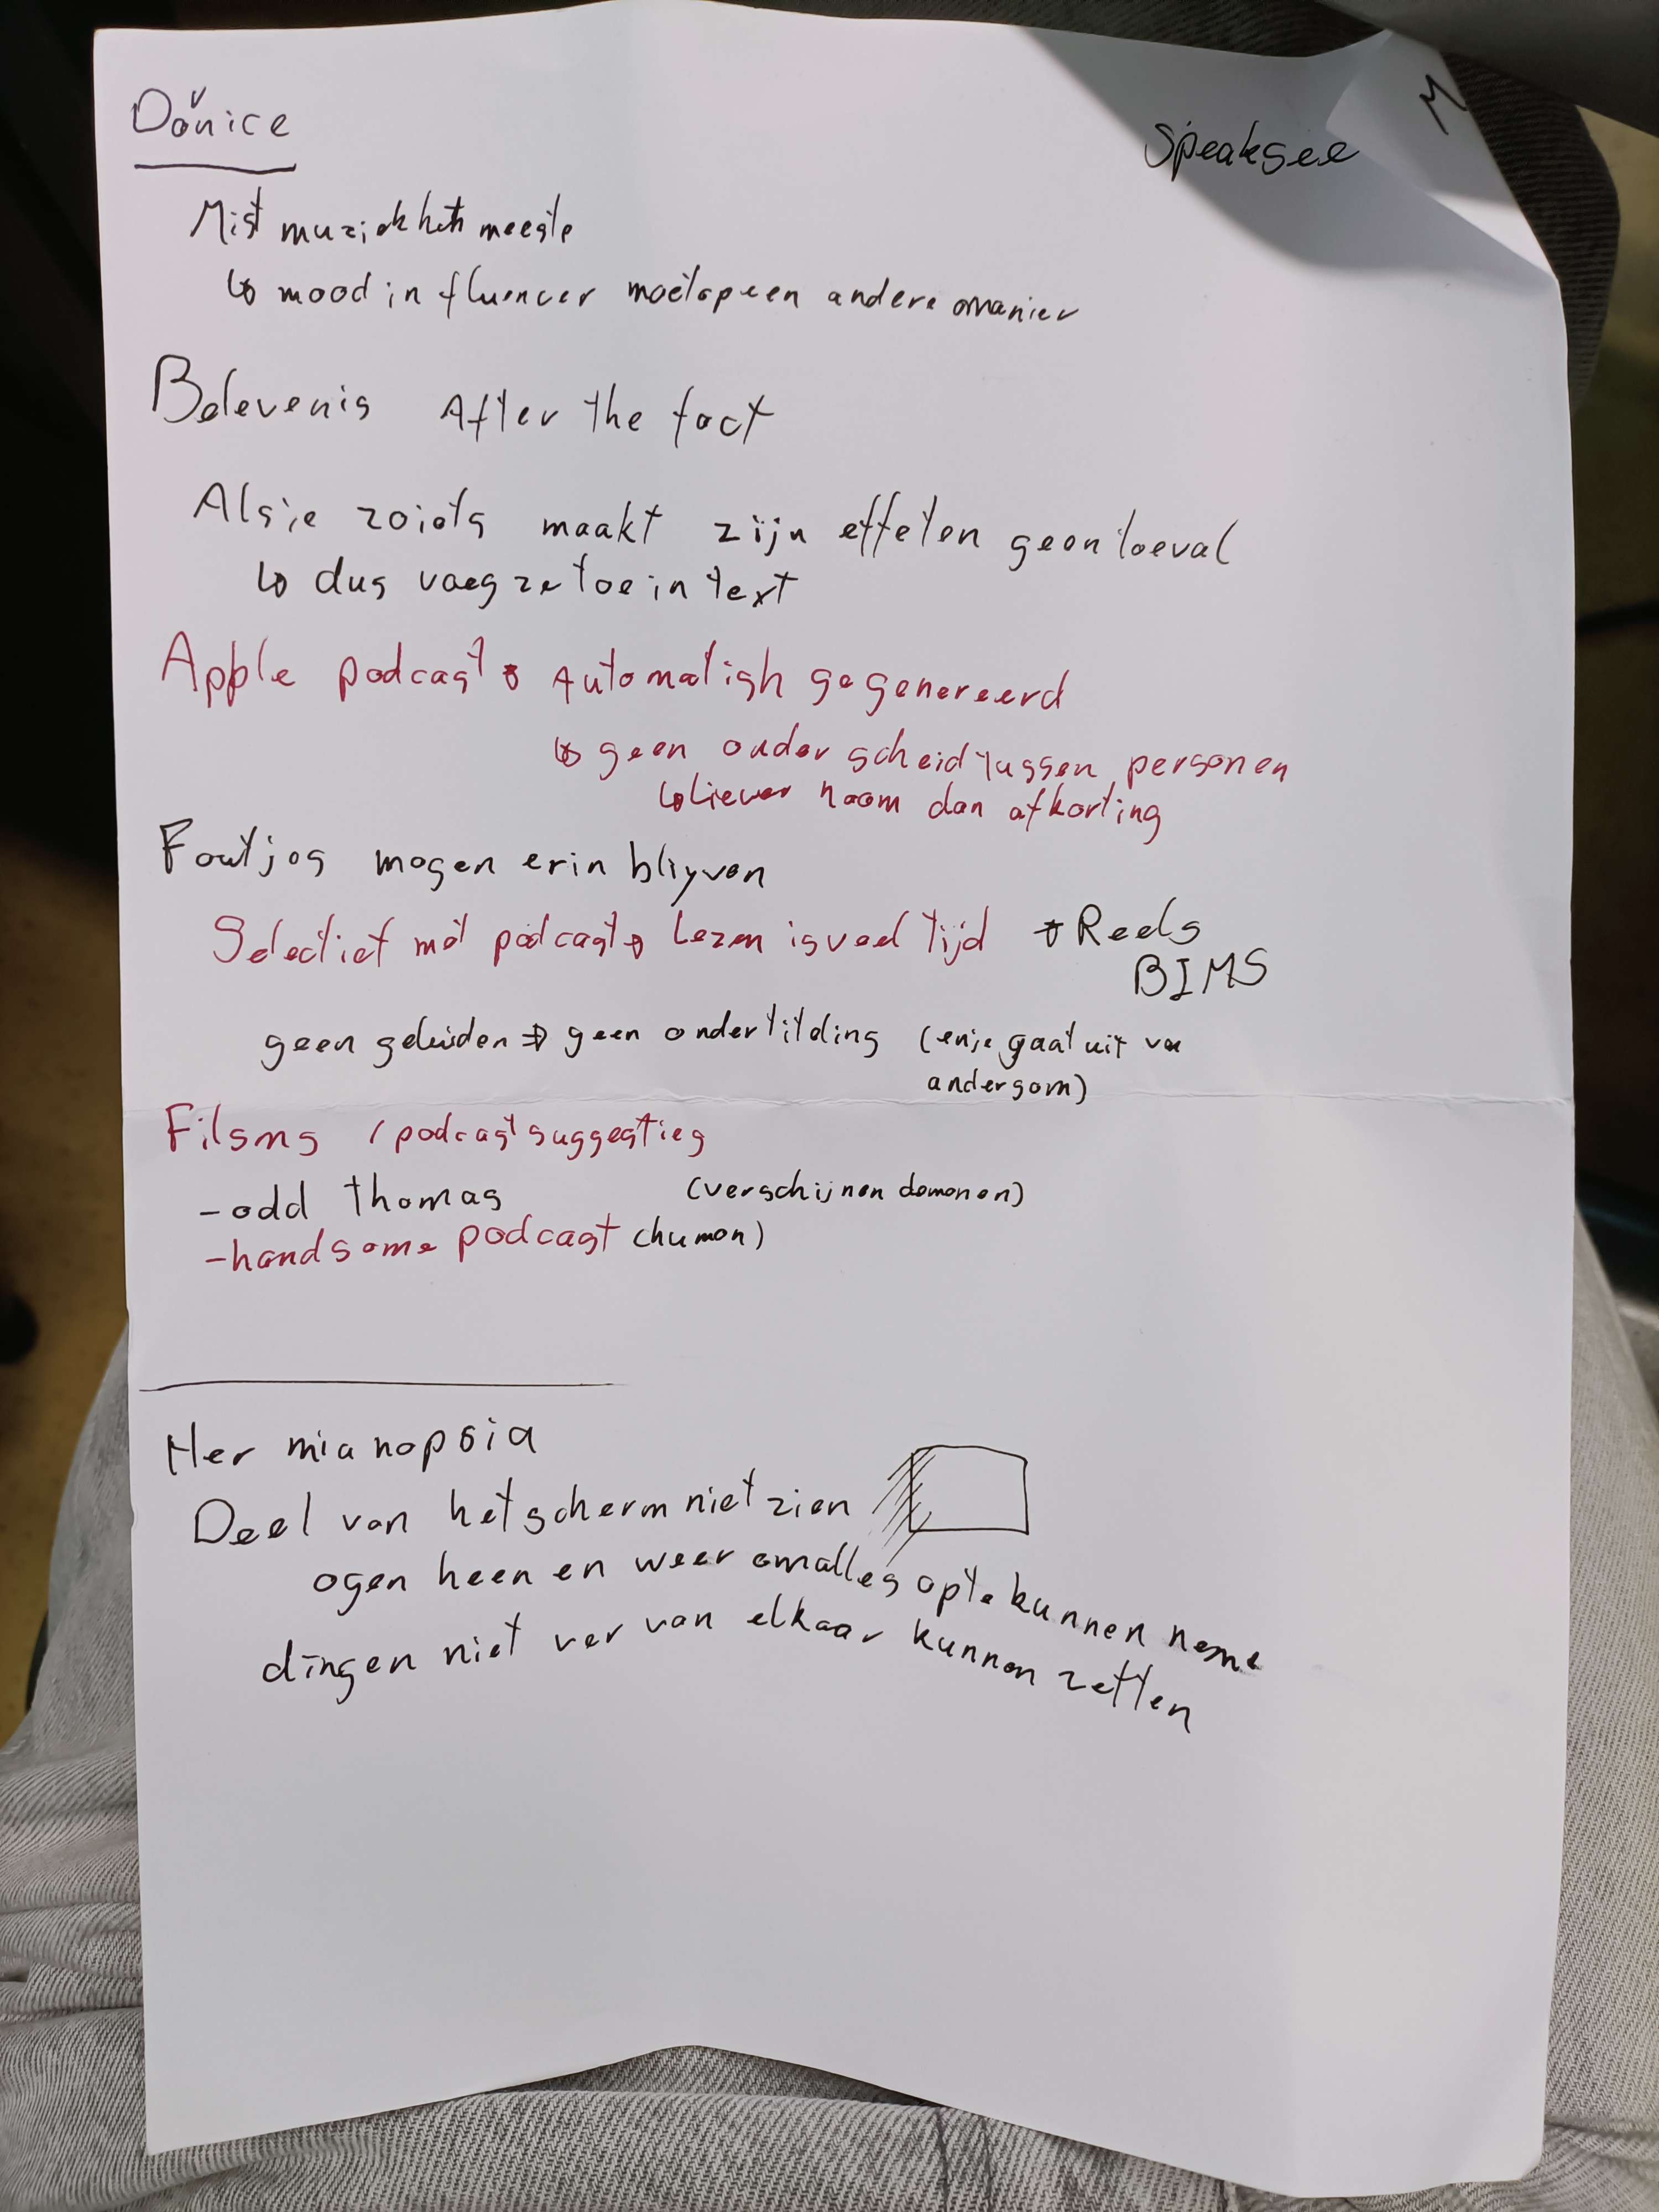 Dǒnice
Speaksee
M
Mist muziek het meeste
↳ mood influencer moet op een andere manier
Belevenis After the fact
Als je zoiets maakt zijn effeten geen toeval
↳ dus voeg ze toe in text
Apple podcast → Automatish gegenereerd
↳ geen onderscheid tussen personen
↳ liever naam dan afkorting
Foutjes mogen erin blijven
Selectief met podcast → Lezen is veel tijd → Reels
BIMS
geen geluiden → geen ondertiteling (en je gaat uit van
andersom)
Filsms / podcast suggesties
- odd thomas (verschijnen demonen)
- handsome podcast (humon)
Hermianopsia
Deel van het scherm niet zien
ogen heen en weer om alles op te kunnen neme
dingen niet ver van elkaar kunnen zetten